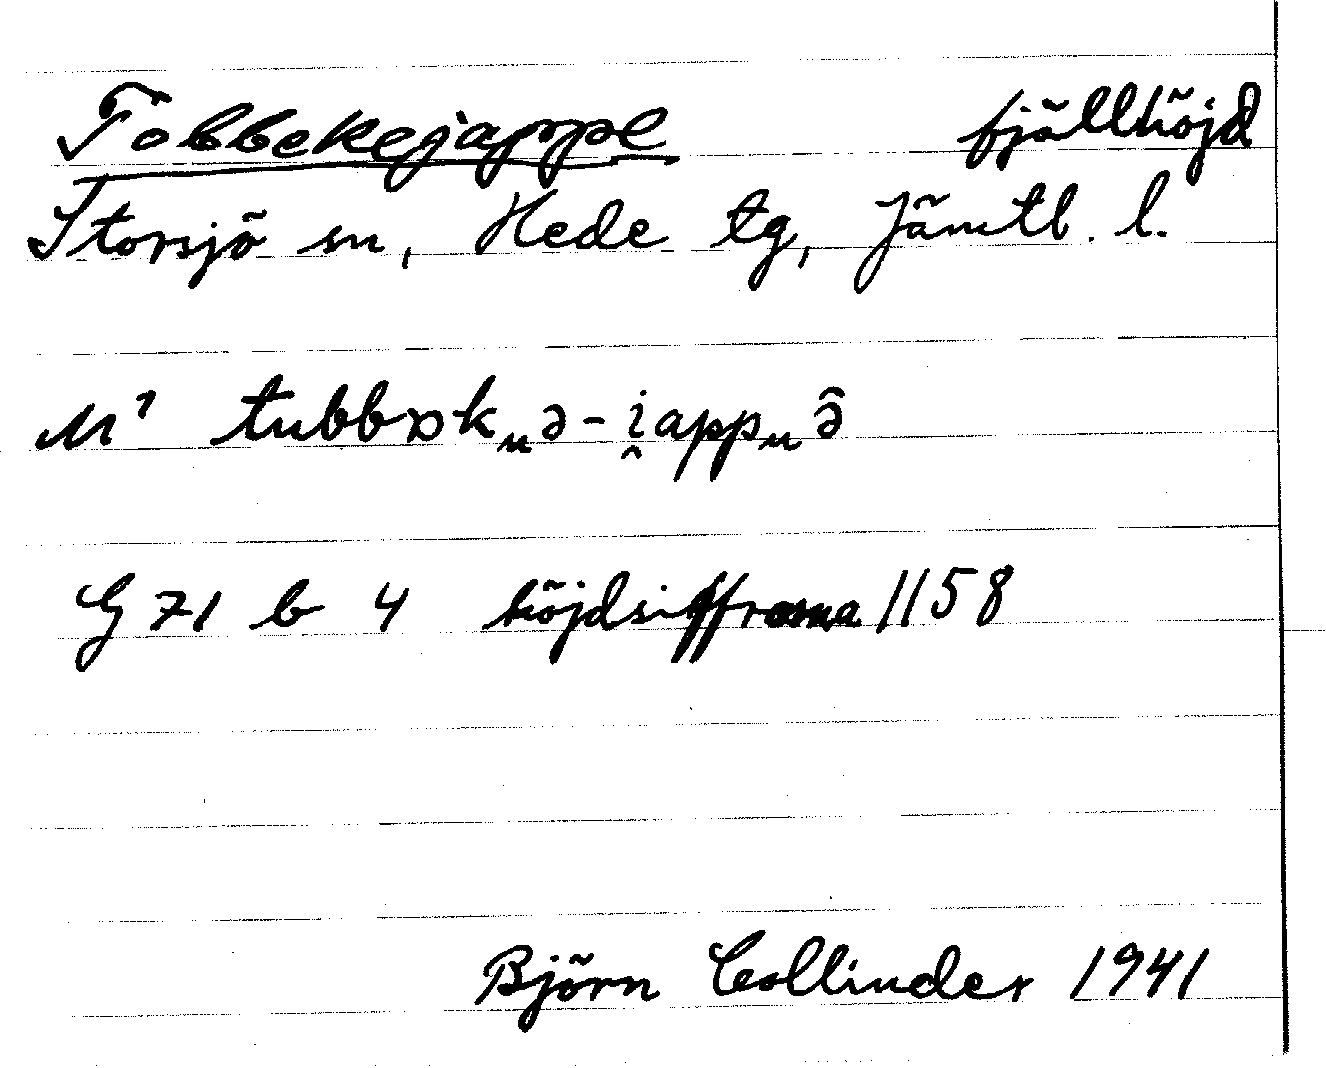 Tobbekejappe fjällhöjd
Storsjö sn, Hede tg, Jämtl. l.
M¹ tubbɒk„ə-i̯app„ə̑
G 71 b 4 höjdsiffrorna 1158
Björn Collinder 1941